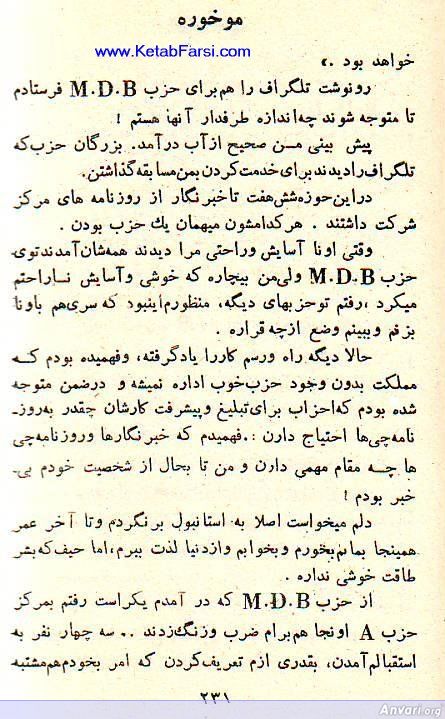 موخوره
www.KetabFarsi.com
خواهد بود .»
رونوشت تلگراف را هم‌برای حزب M.D.B فرستادم
تا متوجه شوند چه‌اندازه طرفدار آنها هستم !
پیش بینی مـن صحیح ازآب درآمد. بزرگان حزب‌که
تلگراف‌رادیدند برای‌خدمت‌کردن بمن‌مسابقه‌گذاشتن.
دراین‌حوزه‌شش‌هفت تاخبرنگار از روزنامه های مرکز
شرکت داشتند . هرکدامشون میهمان یك حزب بودن .
وقتی اونا آسایش وراحتی مرا دیدند همه‌شان‌آمدندتوی
حزب M.D.B ولی‌من بیچاره که خوشی وآسایش نـاراحتم
میکرد ،رفتم توحزبهای دیگه، منظورم‌اینبود که سری‌هم باونا
بزنم وببینم وضع ازچه قراره .
حالا دیگه راه ورسم کاررا یادگرفته، وفهمیده بودم کـه
مملکت بدون وجود حزب‌خوب اداره نمیشه و درضمن متوجه
شده بودم که‌احزاب برای‌تبلیغ وپیشرفت کارشان چقدر به‌روز‌ـ
نامه‌چی‌ها احتیاج دارن :. فهمیدم که خبرنگارها وروزنامه‌چی
ها چـه مقام مهمی دارن و من تا بحال از شخصیت خودم بی‌ـ
خبر بودم !
دلم میخواست اصلا به استانبول برنگردم وتا آخر عمر
همینجا بمانم‌بخورم وبخوابم وازدنیا لذت ببرم،اما حیف‌که‌بشر
طاقت خوشی نداره .
از حزب M.D.B که در آمدم یکراست رفتم بمرکز
حزب A اونجا هم‌برام ضرب وزنگ‌زدند .. سه چهار نفر به
استقبالم‌آمدن، بقدری ازم تعریف‌کردن که امر بخودم‌هم‌مشتبه
۲۳۱
Anvari.org